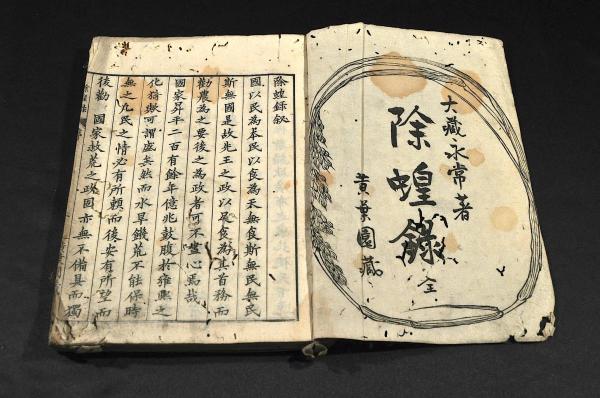 大藏永常著
除蝗錄 全
黄葉園藏
除蝗錄敍
國以民為本民以食為天無食斯無民無民
斯無國是故先王之政以足食為其首務而
勸農為之要後之為政者可不盡心焉哉
國家昇平二百有餘年億兆鼓腹於雍熙之
化猗歟可謂盛矣然而水旱饑荒不能保時
無之凡民之情必有所賴而後安有所望而
後勸 國家救荒之政固亦無不備具而獨